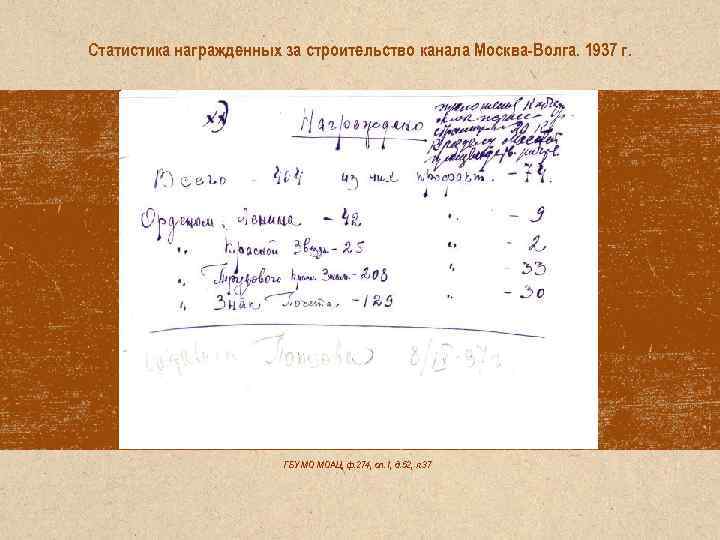 Статистика награжденных за строительство канала Москва-Волга. 1937 г.
Награждено
Всего - 404 из них профраб. - 74.
Орденом Ленина - 42 " - 9
" Красной Звезды - 25 " - 2
" Трудового Крас. Знам. - 208 " - 33
" Знак Почета - 129 " - 30
Попова 8/IX-37 г.
ГБУ МО МОАЦ, ф.274, оп.1, д.52, л.37